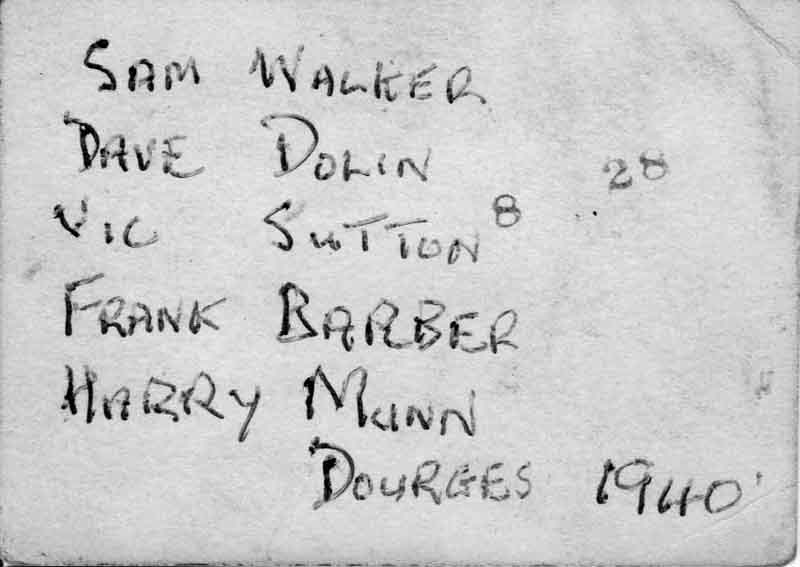 SAM WALKER
DAVE DOLIN
28
VIC SUTTON 8
FRANK BARBER
HARRY MUNN
DOURGES 1940